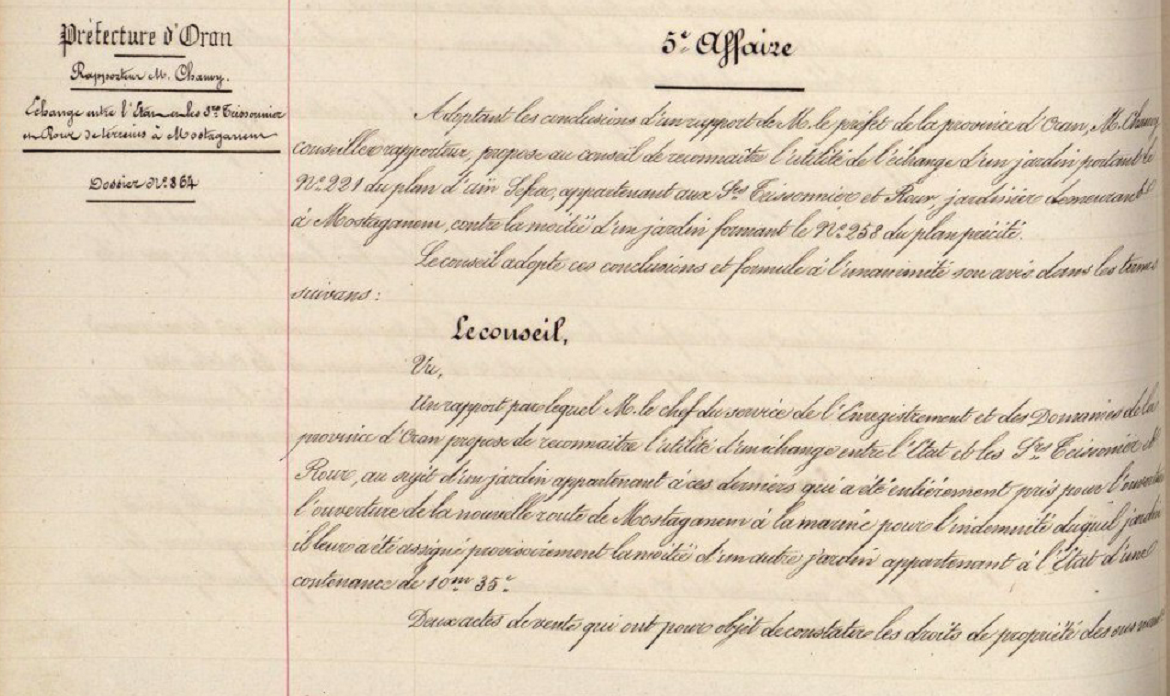 Préfecture d'Oran
Rapporteur M. Chamy.
Échange entre l'État et les Srs Teissonnier
et Roux de terrains à Mostaganem
Dossier No. 864
5e Affaire
Adoptant les conclusions d'un rapport de M. le préfet de la province d'Oran, M. Chamy,
conseiller rapporteur, propose au conseil de reconnaître l'utilité de l'échange d'un jardin portant le
No. 221 du plan d'aïn Sefra, appartenant aux Srs Teissonnier et Roux, jardinier demeurant
à Mostaganem, contre la moitié d'un jardin formant le No. 258 du plan précité.
Le conseil adopte ces conclusions et formule à l'unanimité son avis dans les termes
suivans :
Le conseil,
Vu,
Un rapport par lequel M. le chef du service de l'Enregistrement et des Domaines de la
province d'Oran propose de reconnaître l'utilité d'un échange entre l'État et les Srs Teissonnier et
Roux, au sujet d'un jardin appartenant à ces derniers qui a été entièrement pris pour l'ouverture
l'ouverture de la nouvelle route de Mostaganem à la marine pour l'indemnité duquel jardin
il leur a été assigné provisoirement la moitié d'un autre jardin appartenant à l'État d'une
contenance de 10m 35c
Deux actes de vente qui ont pour objet de constater les droits de propriété des sus